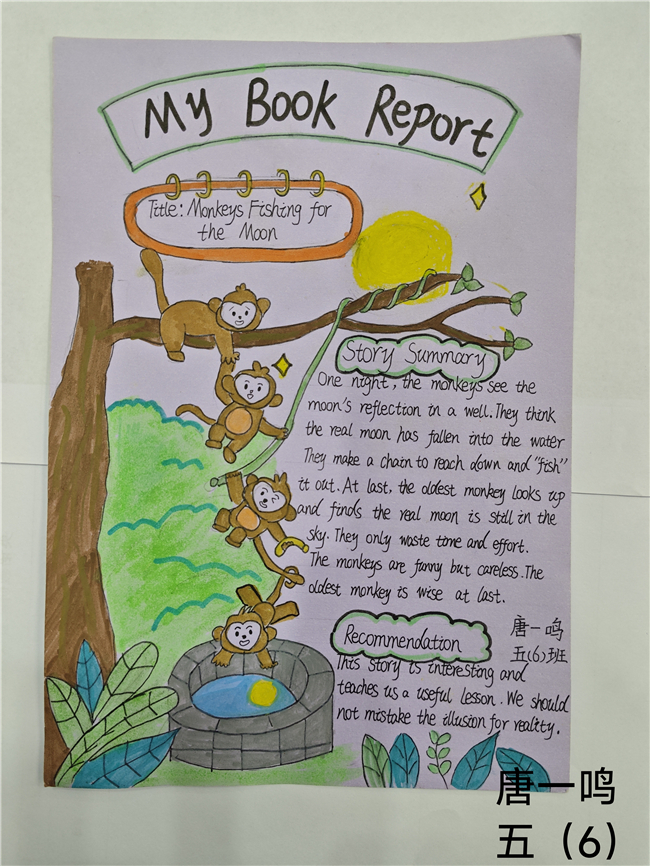 My Book Report
Title: Monkeys Fishing for
the Moon
Story Summary
One night, the monkeys see the
moon's reflection in a well. They think
the real moon has fallen into the water
They make a chain to reach down and "fish"
it out. At last, the oldest monkey looks up
and finds the real moon is still in the
sky. They only waste time and effort.
The monkeys are funny but careless. The
oldest monkey is wise at last.
Recommendation
This story is interesting and
teaches us a useful lesson. We should
not mistake the illusion for reality.
唐一鸣
五(6)班
唐一鸣
五（6）